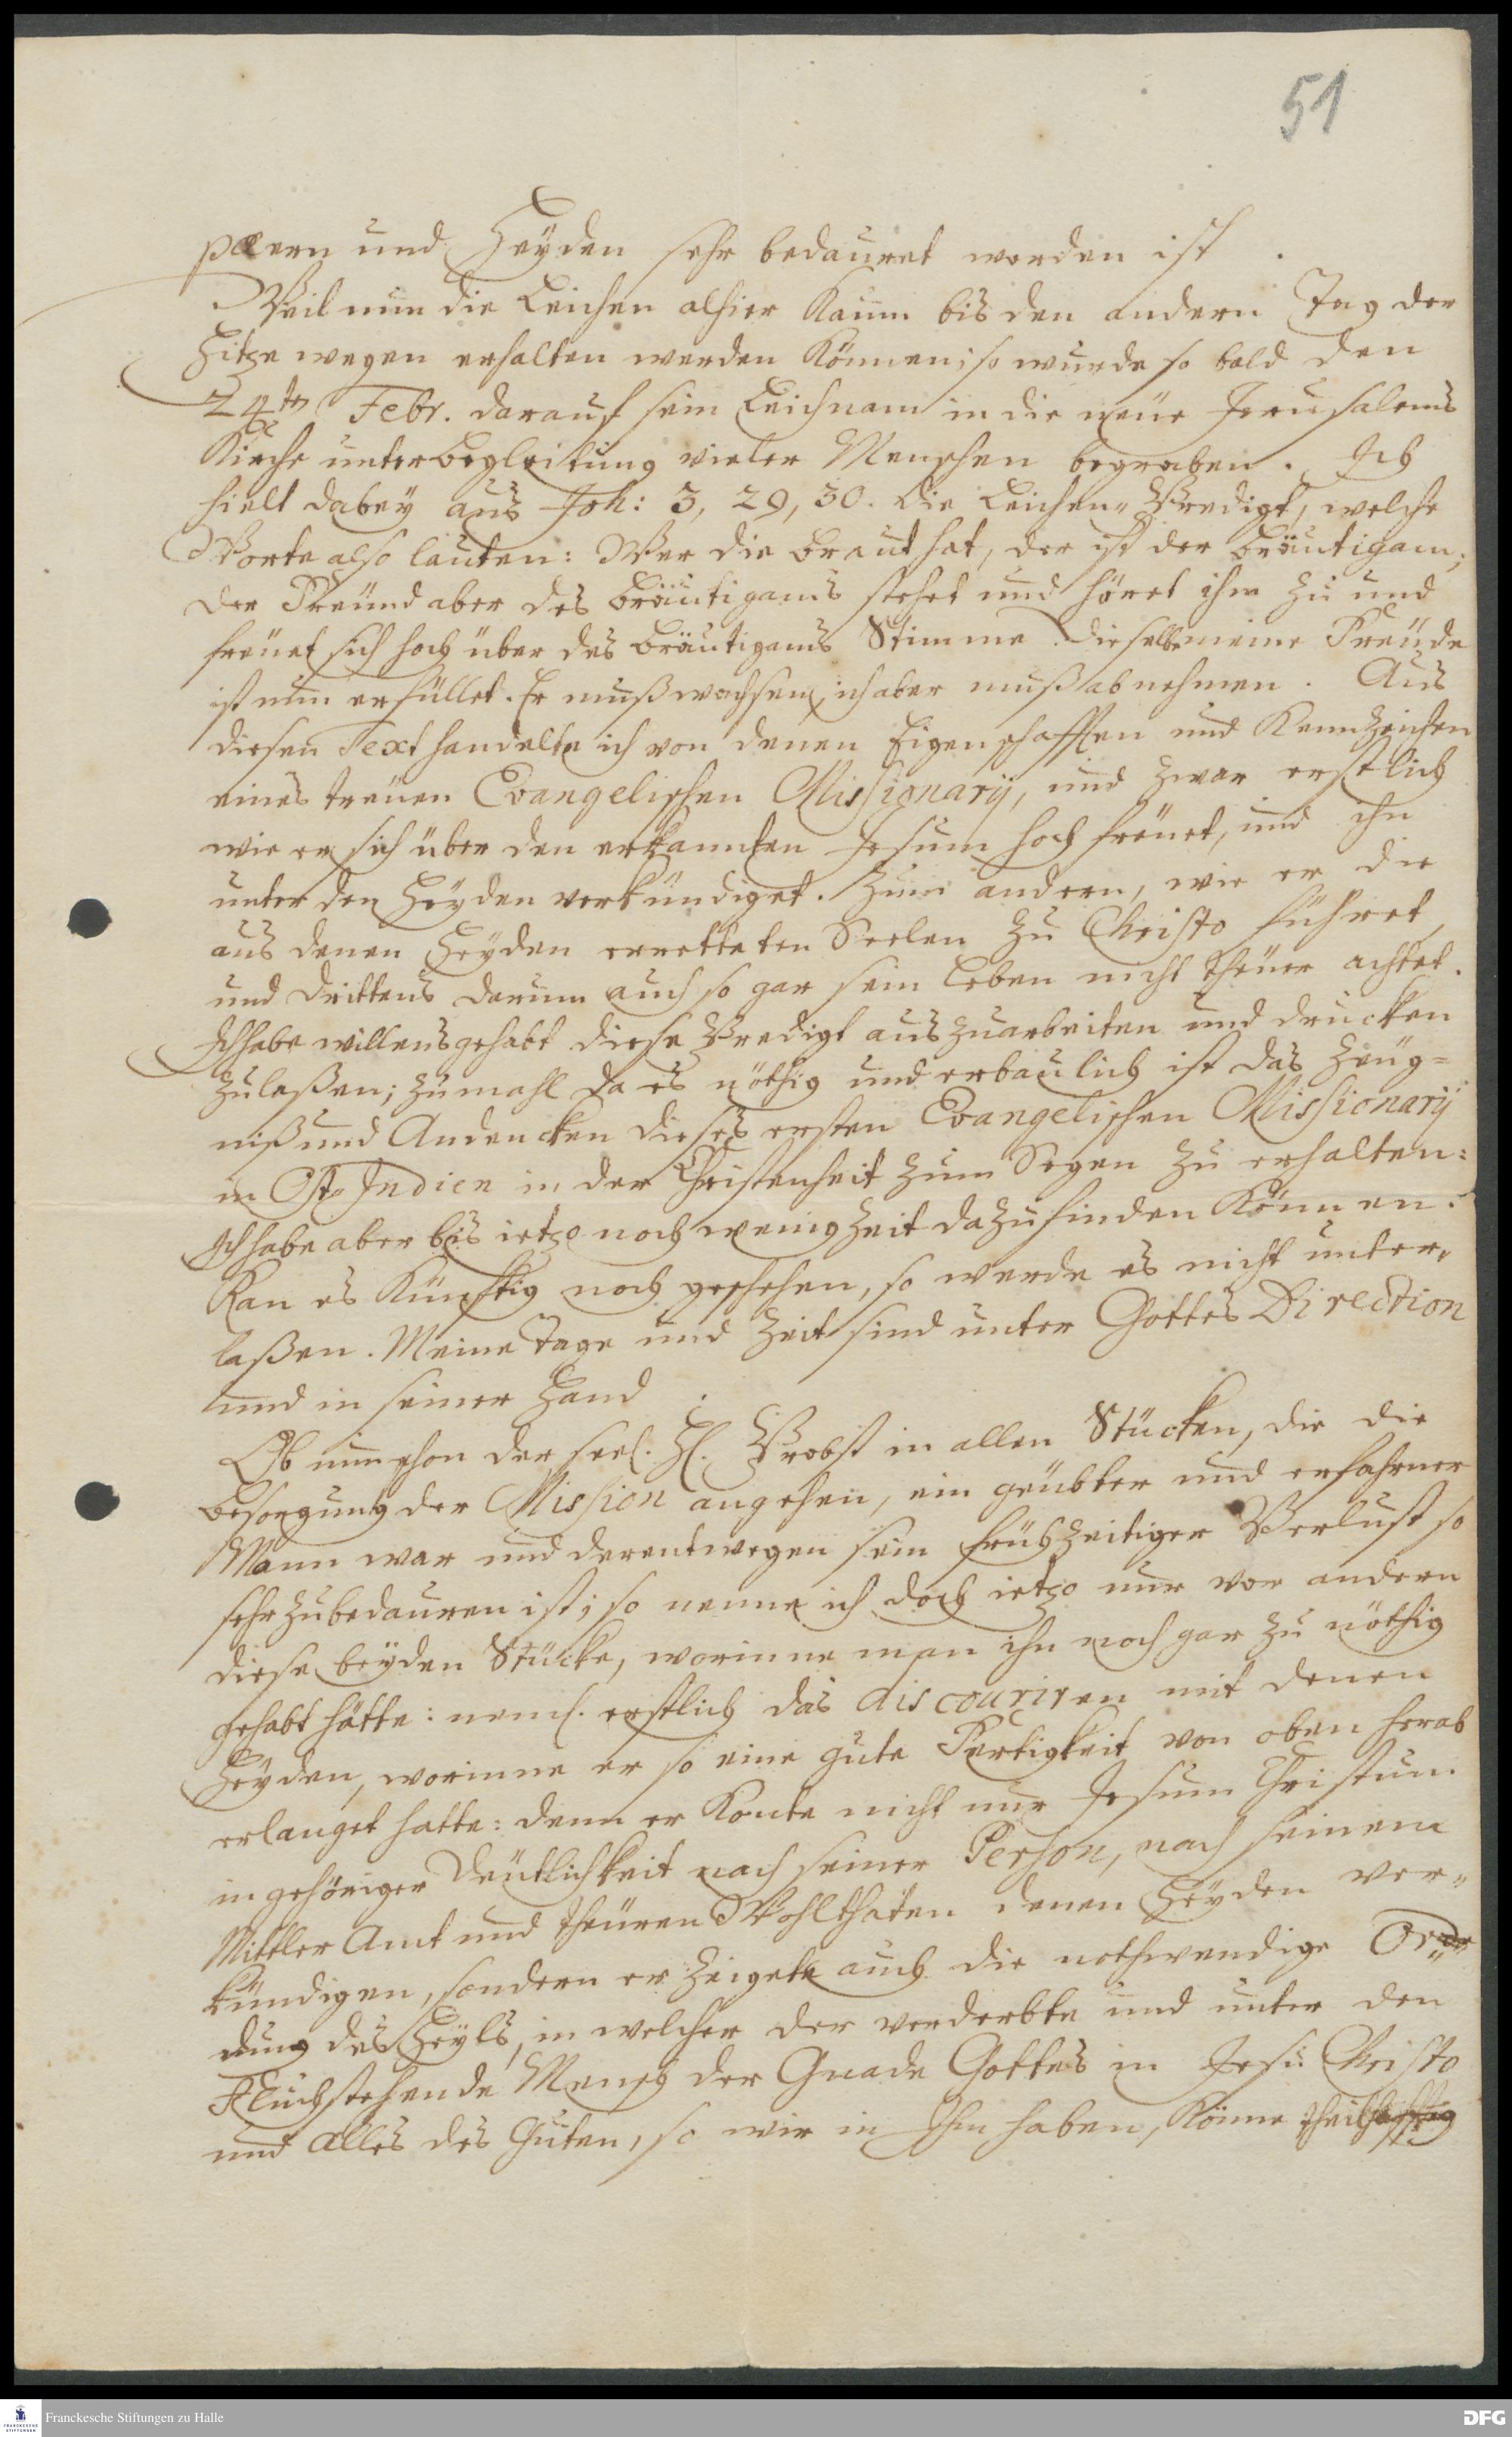 51
pæern und Heyden sehr bedauret worden ist.
Weil nun die Leichen alhier kaum bis den andern Tag der
Hitze wegen erhalten werden können; so wurde so bald den
24ten Febr. darauf sein Leichnam in die neue Jerusalems
Kirche unter Begleitung vieler Menschen begraben. Ich
hielt dabey aus Joh: 3, 29, 30. die Leichen-Predigt, welche
Worte also lauten: Wer die Braut hat, der ist der Bräutigam;
der Freünd aber des Bräutigams stehet und höret ihm zu und
freüet sich hoch über des Bräutigams Stimme. Dieselbe meine Freüde
ist nun erfüllet. Er muß wachsen, ich aber muß abnehmen. Aus
diesen Text handelte ich von denen Eigenschafften und Kennzeichen
eines treüen Evangelischen Missionarij, und zwar erstlich
wie er sich über den erkannten Jesum hoch freüet, und ihn
unter den Heyden verkündiget. Zum andern, wie er die
aus denen Heyden erretteten Seelen zu Christo führet,
und drittens darum auch so gar sein Leben nicht theüer achtet.
Ich habe willens gehabt diese Predigt auszuarbeiten und drucken
zulaßen; zumahl da es nöthig und erbaulich ist das Zeüg=
niß und Andencken dieses ersten Evangelischen Missionarij
in Ost-Indien in der Christenheit zum Segen zu erhalten:
Ich habe aber bis ietzo noch wenig Zeit dazu finden können.
Kan es künfftig noch geschehen, so werde es nicht unter-
laßen. Meine Tage und Zeit sind unter Gottes Direction
und in seiner Hand.
Ob nun schon der seel. H. Probst in allen Stücken, die die
Besorgung der Mission angehen, ein geübter und erfahrner
Mann war und derentwegen sein frühzeitiger Verlust so
sehr zubedauren ist; so nenne ich doch ietzo nur vor andern
diese beyden Stücke, worinne man ihn noch gar zu nöthig
gehabt hätte: neml. erstlich das discouriren mit denen
Heyden, worinne er so eine gute Fertigkeit von oben herab
erlanget hatte: denn er konte nicht nur Jesum Christum
in gehöriger Deütlichkeit nach seiner Person, nach seinem
Mittler Amt und theüren Wohlthaten denen Heyden ver-
kündigen, sondern er zeigete auch die nothwendige Ord-
nung des Heyls, in welcher der verderbte und unter den
Fluch stehende Mensch der Gnade Gottes in Jesu Christo
und alles des Guten, so wir in Ihm haben, könne theilhafftig
Franckesche Stiftungen zu Halle
DFG